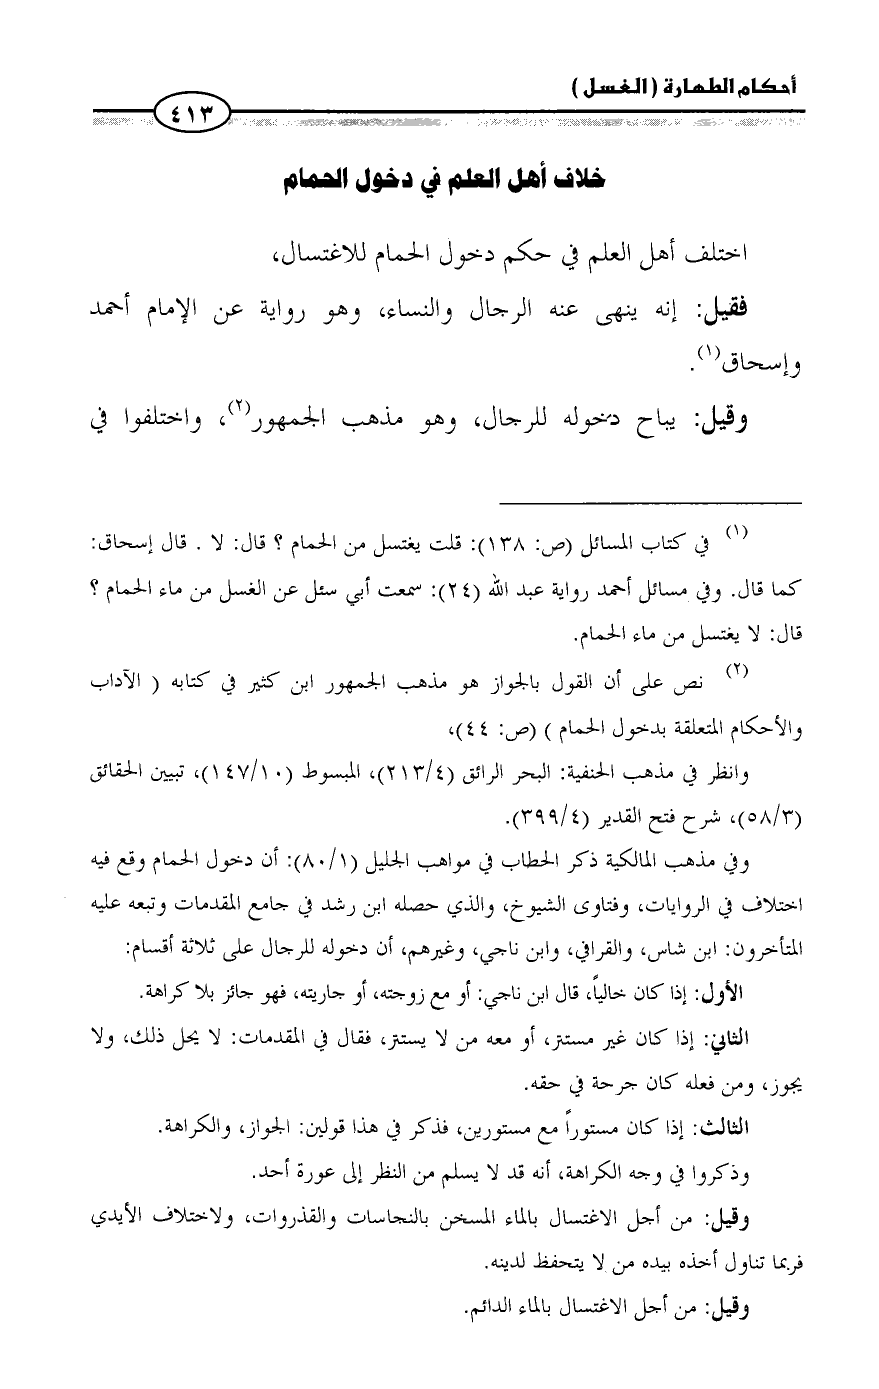 أحكام الطهارة (الغسل)
٤١٣
خلاف أهل العلم في دخول الحمام
اختلف أهل العلم في حكم دخول الحمام للاغتسال،
فقيل: إنه ينهى عنه الرجال والنساء، وهو رواية عن الإمام أحمد
وإسحاق(١).
وقيل: يباح دخوله للرجال، وهو مذهب الجمهور(٢)، واختلفوا في
(١) في كتاب المسائل (ص: ١٣٨): قلت يغتسل من الحمام ؟ قال: لا . قال إسحاق:
كما قال. وفي مسائل أحمد رواية عبد الله (٢٤): سمعت أبي سئل عن الغسل من ماء الحمام ؟
قال: لا يغتسل من ماء الحمام.
(٢) نص على أن القول بالجواز هو مذهب الجمهور ابن كثير في كتابه ( الآداب
والأحكام المتعلقة بدخول الحمام ) (ص: ٤٤)،
وانظر في مذهب الحنفية: البحر الرائق (٢١٣/٤)، المبسوط (١٤٧/١٠)، تبيين الحقائق
(٥٨/٣)، شرح فتح القدير (٣٩٩/٤).
وفي مذهب المالكية ذكر الحطاب في مواهب الجليل (٨٠/١): أن دخول الحمام وقع فيه
اختلاف في الروايات، وفتاوى الشيوخ، والذي حصله ابن رشد في جامع المقدمات وتبعه عليه
المتأخرون: ابن شاس، والقرافي، وابن ناجي، وغيرهم، أن دخوله للرجال على ثلاثة أقسام:
الأول: إذا كان خالياً، قال ابن ناجي: أو مع زوجته، أو جاريته، فهو جائز بلا كراهة.
الثاني: إذا كان غير مستتر، أو معه من لا يستتر، فقال في المقدمات: لا يحل ذلك، ولا
يجوز، ومن فعله كان جرحة في حقه.
الثالث: إذا كان مستوراً مع مستورين، فذكر في هذا قولين: الجواز، والكراهة.
وذكروا في وجه الكراهة، أنه قد لا يسلم من النظر إلى عورة أحد.
وقيل: من أجل الاغتسال بالماء المسخن بالنجاسات والقذروات، ولاختلاف الأيدي
فربما تناول أخذه بيده من لا يتحفظ لدينه.
وقيل: من أجل الاغتسال بالماء الدائم.